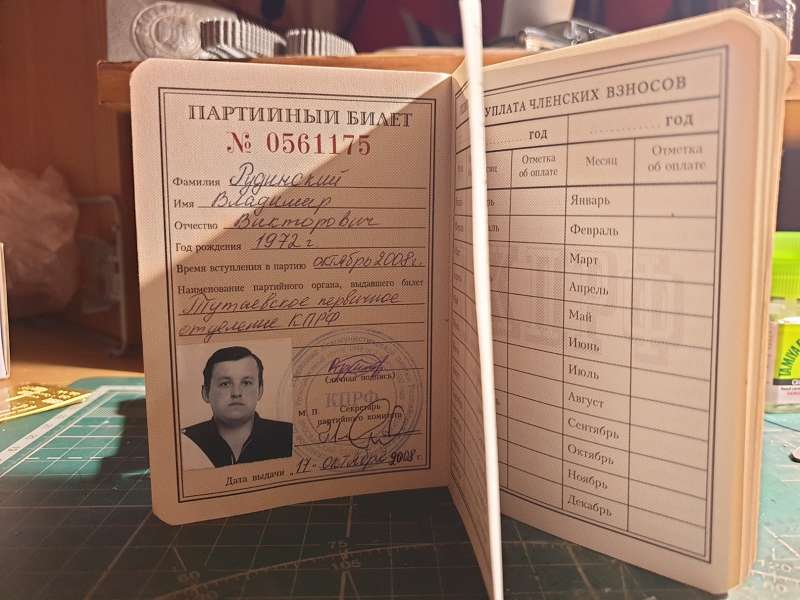 ПАРТИЙНЫЙ БИЛЕТ
№ 0561175
Фамилия Рудинский
Имя Владимир
Отчество Викторович
Год рождения 1972 г
Время вступления в партию октябрь 2008 г.
Наименование партийного органа, выдавшего билет
Тутаевское первичное
отделение КПРФ
(личная подпись)
КПРФ
М. П. Секретарь
партийного комитета
Дата выдачи „17" октября 2008 г.
УПЛАТА ЧЛЕНСКИХ ВЗНОСОВ
год год
Отметка об оплате Месяц Отметка об оплате
Январь
Февраль
Март
Апрель
Май
Июнь
Июль
Август
Сентябрь
Октябрь
Ноябрь
Декабрь
TAMIYA
75
60